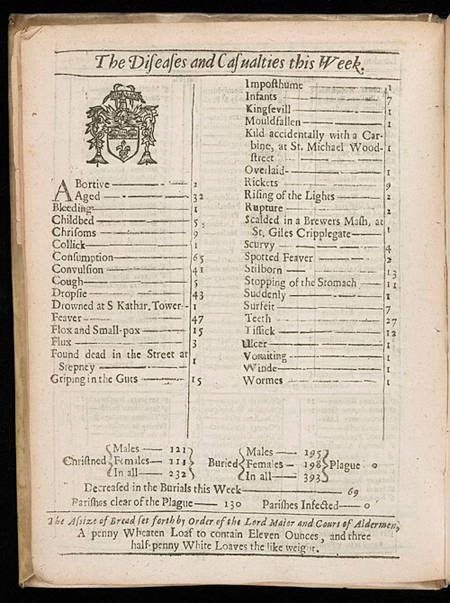 The Diſeaſes and Caſualties this Week.
ABortive 2
Aged 32
Bleeding 1
Childbed 5
Chriſoms 9
Collick 1
Conſumption 65
Convulſion 41
Cough 5
Dropſie 43
Drowned at S Kathar. Tower 1
Feaver 47
Flox and Small-pox 15
Flux 3
Found dead in the Street at
Stepney 1
Griping in the Guts 15
Impoſthume 1
Infants 7
Kingſevill 1
Mouldfallen 1
Kild accidentally with a Car-
bine, at St. Michael Wood-
ſtreet 1
Overlaid 1
Rickets 9
Riſing of the Lights 2
Rupture 2
Scalded in a Brewers Maſh, at
St. Giles Cripplegate 1
Scurvy 4
Spotted Feaver 2
Stilborn 13
Stopping of the Stomach 11
Suddenly 1
Surfeit 7
Teeth 27
Tiſſick 12
Ulcer 1
Vomiting 1
Winde 1
Wormes 1
Chriſtned { Males 121 Females 111 In all 232 }
Buried { Males 195 Females 198 In all 393 } Plague 0
Decreaſed in the Burials this Week 69
Pariſhes clear of the Plague 130 Pariſhes Infected 0
The Aſſize of Bread ſet forth by Order of the Lord Maior and Court of Aldermen,
A penny Wheaten Loaf to contain Eleven Ounces, and three
half-penny White Loaves the like weight.